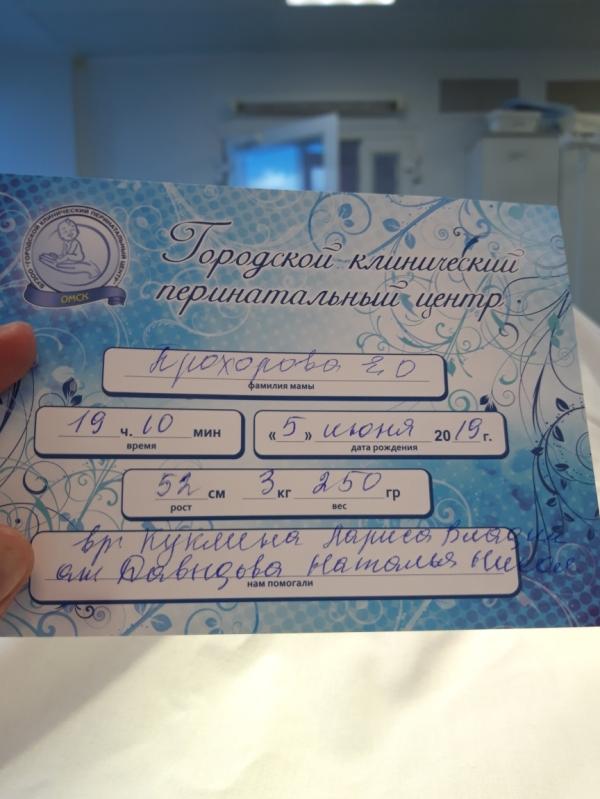 БУЗОО "ГОРОДСКОЙ КЛИНИЧЕСКИЙ ПЕРИНАТАЛЬНЫЙ ЦЕНТР"
ОМСК
Городской клинический
перинатальный центр
Прохорова Е О
фамилия мамы
19 ч. 10 мин
время
«5» июня 2019 г.
дата рождения
52 см
рост
3 кг 250 гр
вес
вр. Куклина Лариса Влади
ак Давыдова Наталья Никол
нам помогали